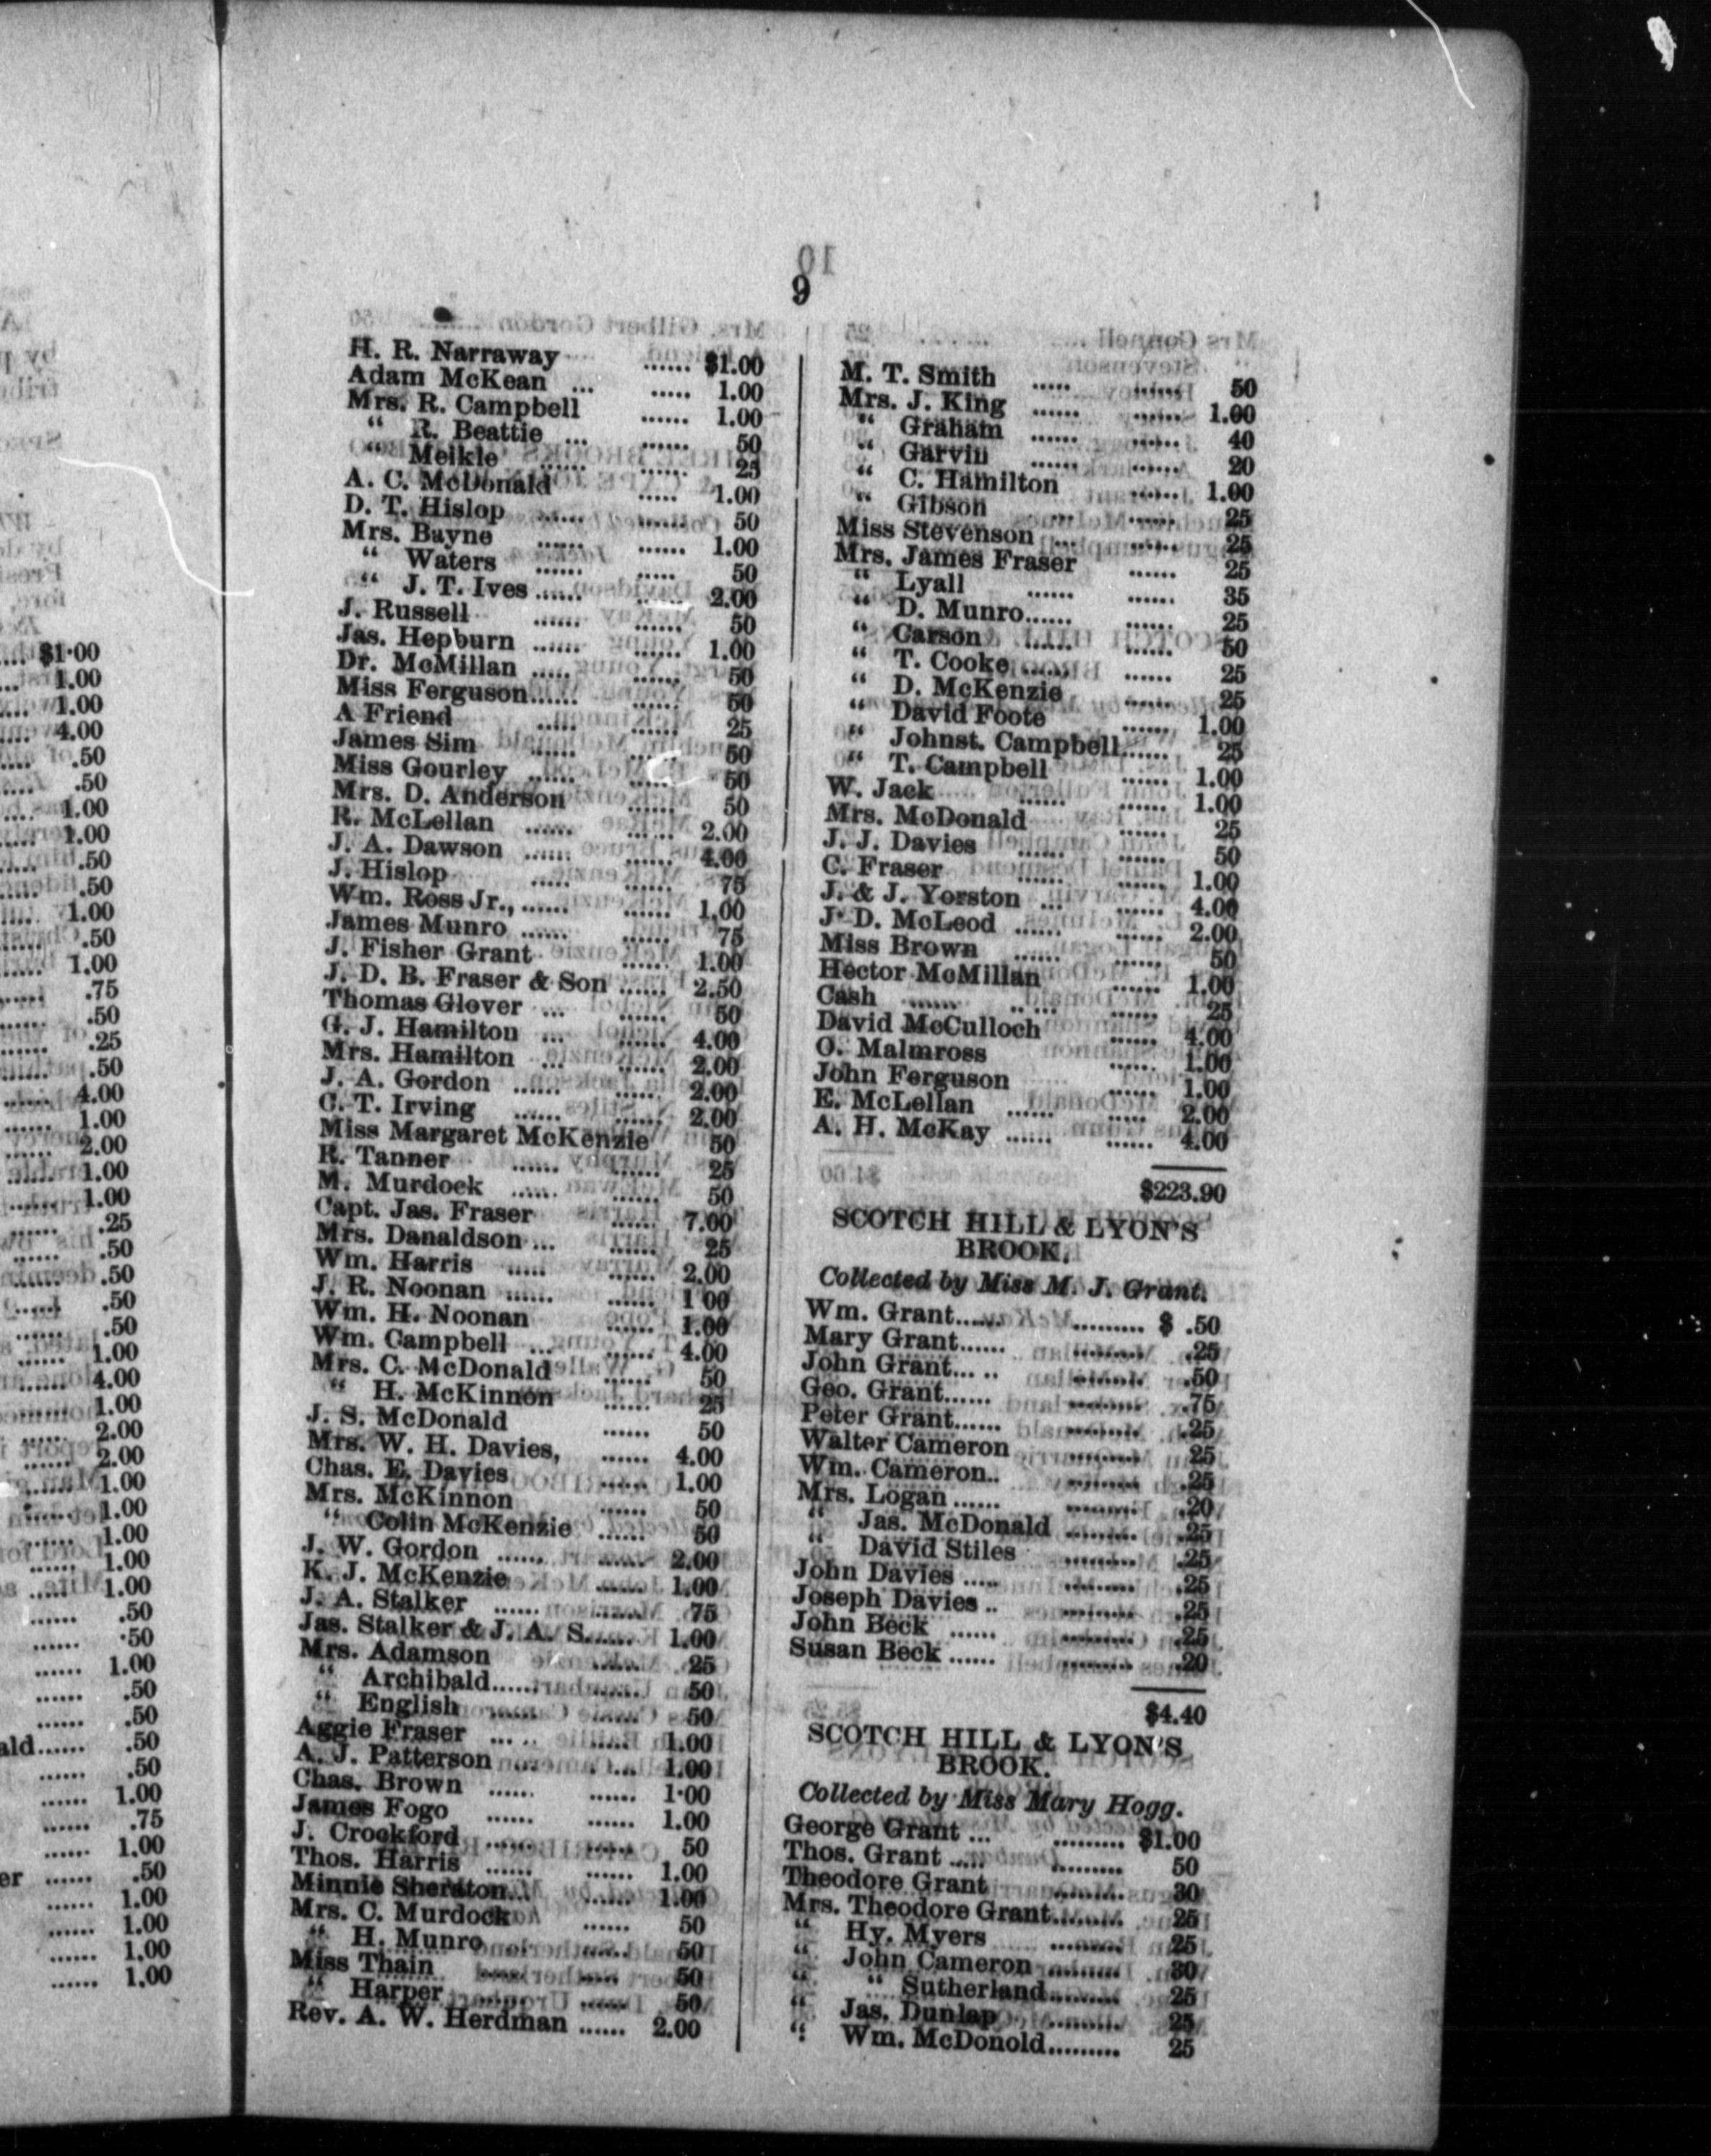 $1·00
1.00
1.00
4.00
.50
.50
1.00
1.00
.50
.50
1.00
.50
1.00
.75
.50
.25
.50
4.00
1.00
2.00
1.00
1.00
.25
.50
.50
.50
.50
1.00
4.00
1.00
2.00
2.00
1.00
1.00
1.00
1.00
1.00
.50
·50
1.00
.50
.50
ald...... .50
.50
1.00
.75
1.00
er ...... .50
1.00
1.00
1.00
1.00
9
H. R. Narraway ...... $1.00
Adam McKean ... ..... 1.00
Mrs. R. Campbell ...... 1.00
“ R. Beattie ... ...... 50
“ Meikle ...... ...... 25
A. C. McDonald ..... 1.00
D. T. Hislop ...... ...... 50
Mrs. Bayne ...... ...... 1.00
“ Waters ...... ..... 50
“ J. T. Ives ...... ...... 2.00
J. Russell ...... ...... 50
Jas. Hepburn ...... ...... 1.00
Dr. McMillan ..... ...... 50
Miss Ferguson...... ...... 50
A Friend ..... ...... 25
James Sim ...... ...... 50
Miss Gourley ...... ..... 50
Mrs. D. Anderson ...... 50
R. McLellan ...... ...... 2.00
J. A. Dawson ...... ...... 4.00
J. Hislop ..... ...... 75
Wm. Ross Jr., ...... ...... 1.00
James Munro ...... ...... 75
J. Fisher Grant ...... 1.00
J. D. B. Fraser & Son ...... 2.50
Thomas Glover ... ...... 50
G. J. Hamilton ... ...... 4.00
Mrs. Hamilton ... ...... 2.00
J. A. Gordon ...... ...... 2.00
C. T. Irving ...... ...... 2.00
Miss Margaret McKenzie 50
R. Tanner ...... ...... 25
M. Murdock ...... ...... 50
Capt. Jas. Fraser ...... 7.00
Mrs. Danaldson ... ...... 25
Wm. Harris ..... ...... 2.00
J. R. Noonan ...... ...... 1 00
Wm. H. Noonan ...... 1.00
Wm. Campbell ... ...... 4.00
Mrs. C. McDonald ...... 50
“ H. McKinnon ...... 25
J. S. McDonald ...... 50
Mrs. W. H. Davies, ...... 4.00
Chas. E. Davies ...... 1.00
Mrs. McKinnon ...... 50
“ Colin McKenzie ...... 50
J. W. Gordon ...... ...... 2.00
K. J. McKenzie ...... 1.00
J. A. Stalker ...... ...... 75
Jas. Stalker & J. A. S. ...... 1.00
Mrs. Adamson ...... 25
“ Archibald...... ...... 50
“ English ...... ...... 50
Aggie Fraser ... .. ...... 1.00
A. J. Patterson ...... 1.00
Chas. Brown ...... ...... 1·00
James Fogo ...... ...... 1.00
J. Crockford ...... ...... 50
Thos. Harris ...... ...... 1.00
Minnie Sheraton... ...... 1.00
Mrs. C. Murdock ...... 50
“ H. Munro ...... 50
Miss Thain ...... ..... 50
“ Harper ...... ...... 50
Rev. A. W. Herdman ...... 2.00
M. T. Smith ..... ...... 50
Mrs. J. King ...... ...... 1.00
“ Graham ...... ...... 40
“ Garvin ...... ...... 20
“ C. Hamilton ...... 1.00
“ Gibson ..... ...... 25
Miss Stevenson ... ...... 25
Mrs. James Fraser ...... 25
“ Lyall ...... ...... 35
“ D. Munro...... ...... 25
“ Carson ...... ...... 50
“ T. Cooke ...... ...... 25
“ D. McKenzie ...... 25
“ David Foote ...... 1.00
“ Johnst. Campbell...... 25
“ T. Campbell ...... 1.00
W. Jack ...... ...... 1.00
Mrs. McDonald ...... 25
J. J. Davies ...... ...... 50
C. Fraser ...... ...... 1.00
J. & J. Yorston ... ...... 4.00
J. D. McLeod ...... ...... 2.00
Miss Brown ...... ...... 50
Hector McMillan ...... 1.00
Cash ...... ...... ...... 25
David McCulloch ...... 4.00
O. Malmross ..... 1.00
John Ferguson ...... 1.00
E. McLellan ...... ..... 2.00
A. H. McKay ...... ...... 4.00
$223.90
SCOTCH HILL & LYON'S
BROOK.
Collected by Miss M. J. Grant.
Wm. Grant...... ......... $ .50
Mary Grant...... ......... .25
John Grant... .. ......... .50
Geo. Grant...... ......... .75
Peter Grant...... ......... .25
Walter Cameron ......... 25
Wm. Cameron.. ......... .25
Mrs. Logan ...... ......... .20
“ Jas. McDonald ......... .25
“ David Stiles ......... .25
John Davies ..... ......... .25
Joseph Davies .. ......... .25
John Beck ...... ......... .25
Susan Beck ...... ......... .20
$4.40
SCOTCH HILL & LYON'S
BROOK.
Collected by Miss Mary Hogg.
George Grant ... ......... $1.00
Thos. Grant ..... ......... 50
Theodore Grant ......... 30
Mrs. Theodore Grant......... 25
“ Hy. Myers ......... 25
“ John Cameron ......... 30
“ “ Sutherland......... 25
“ Jas. Dunlap ......... 25
“ Wm. McDonold......... 25